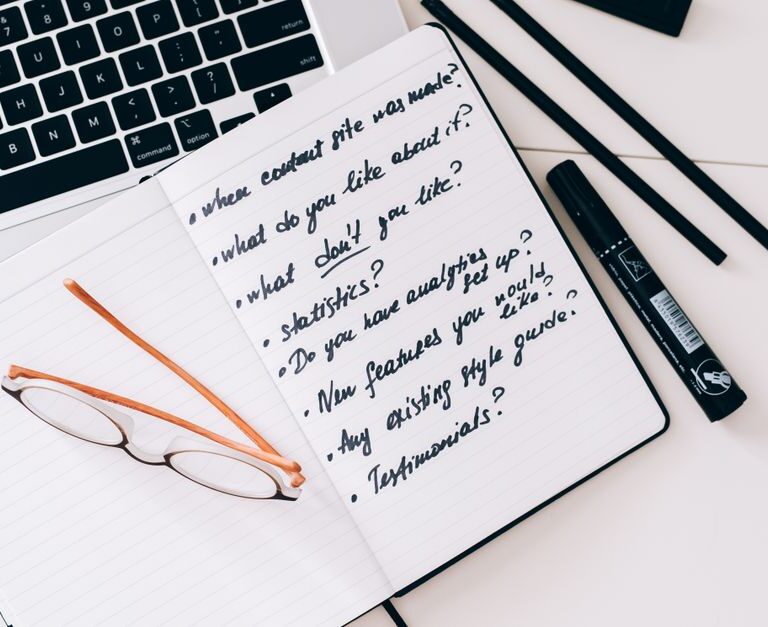 7 8 9
U I O P
return
H J K L : ; " '
shift
B N M < , > . ? /
⌘ command
⌥ option
• when content site was made?
• what do you like about it?
• what don't you like?
• statistics?
• Do you have analytics
set up?
• New features you would
like?
• Any existing style guide?
• Testimonials?